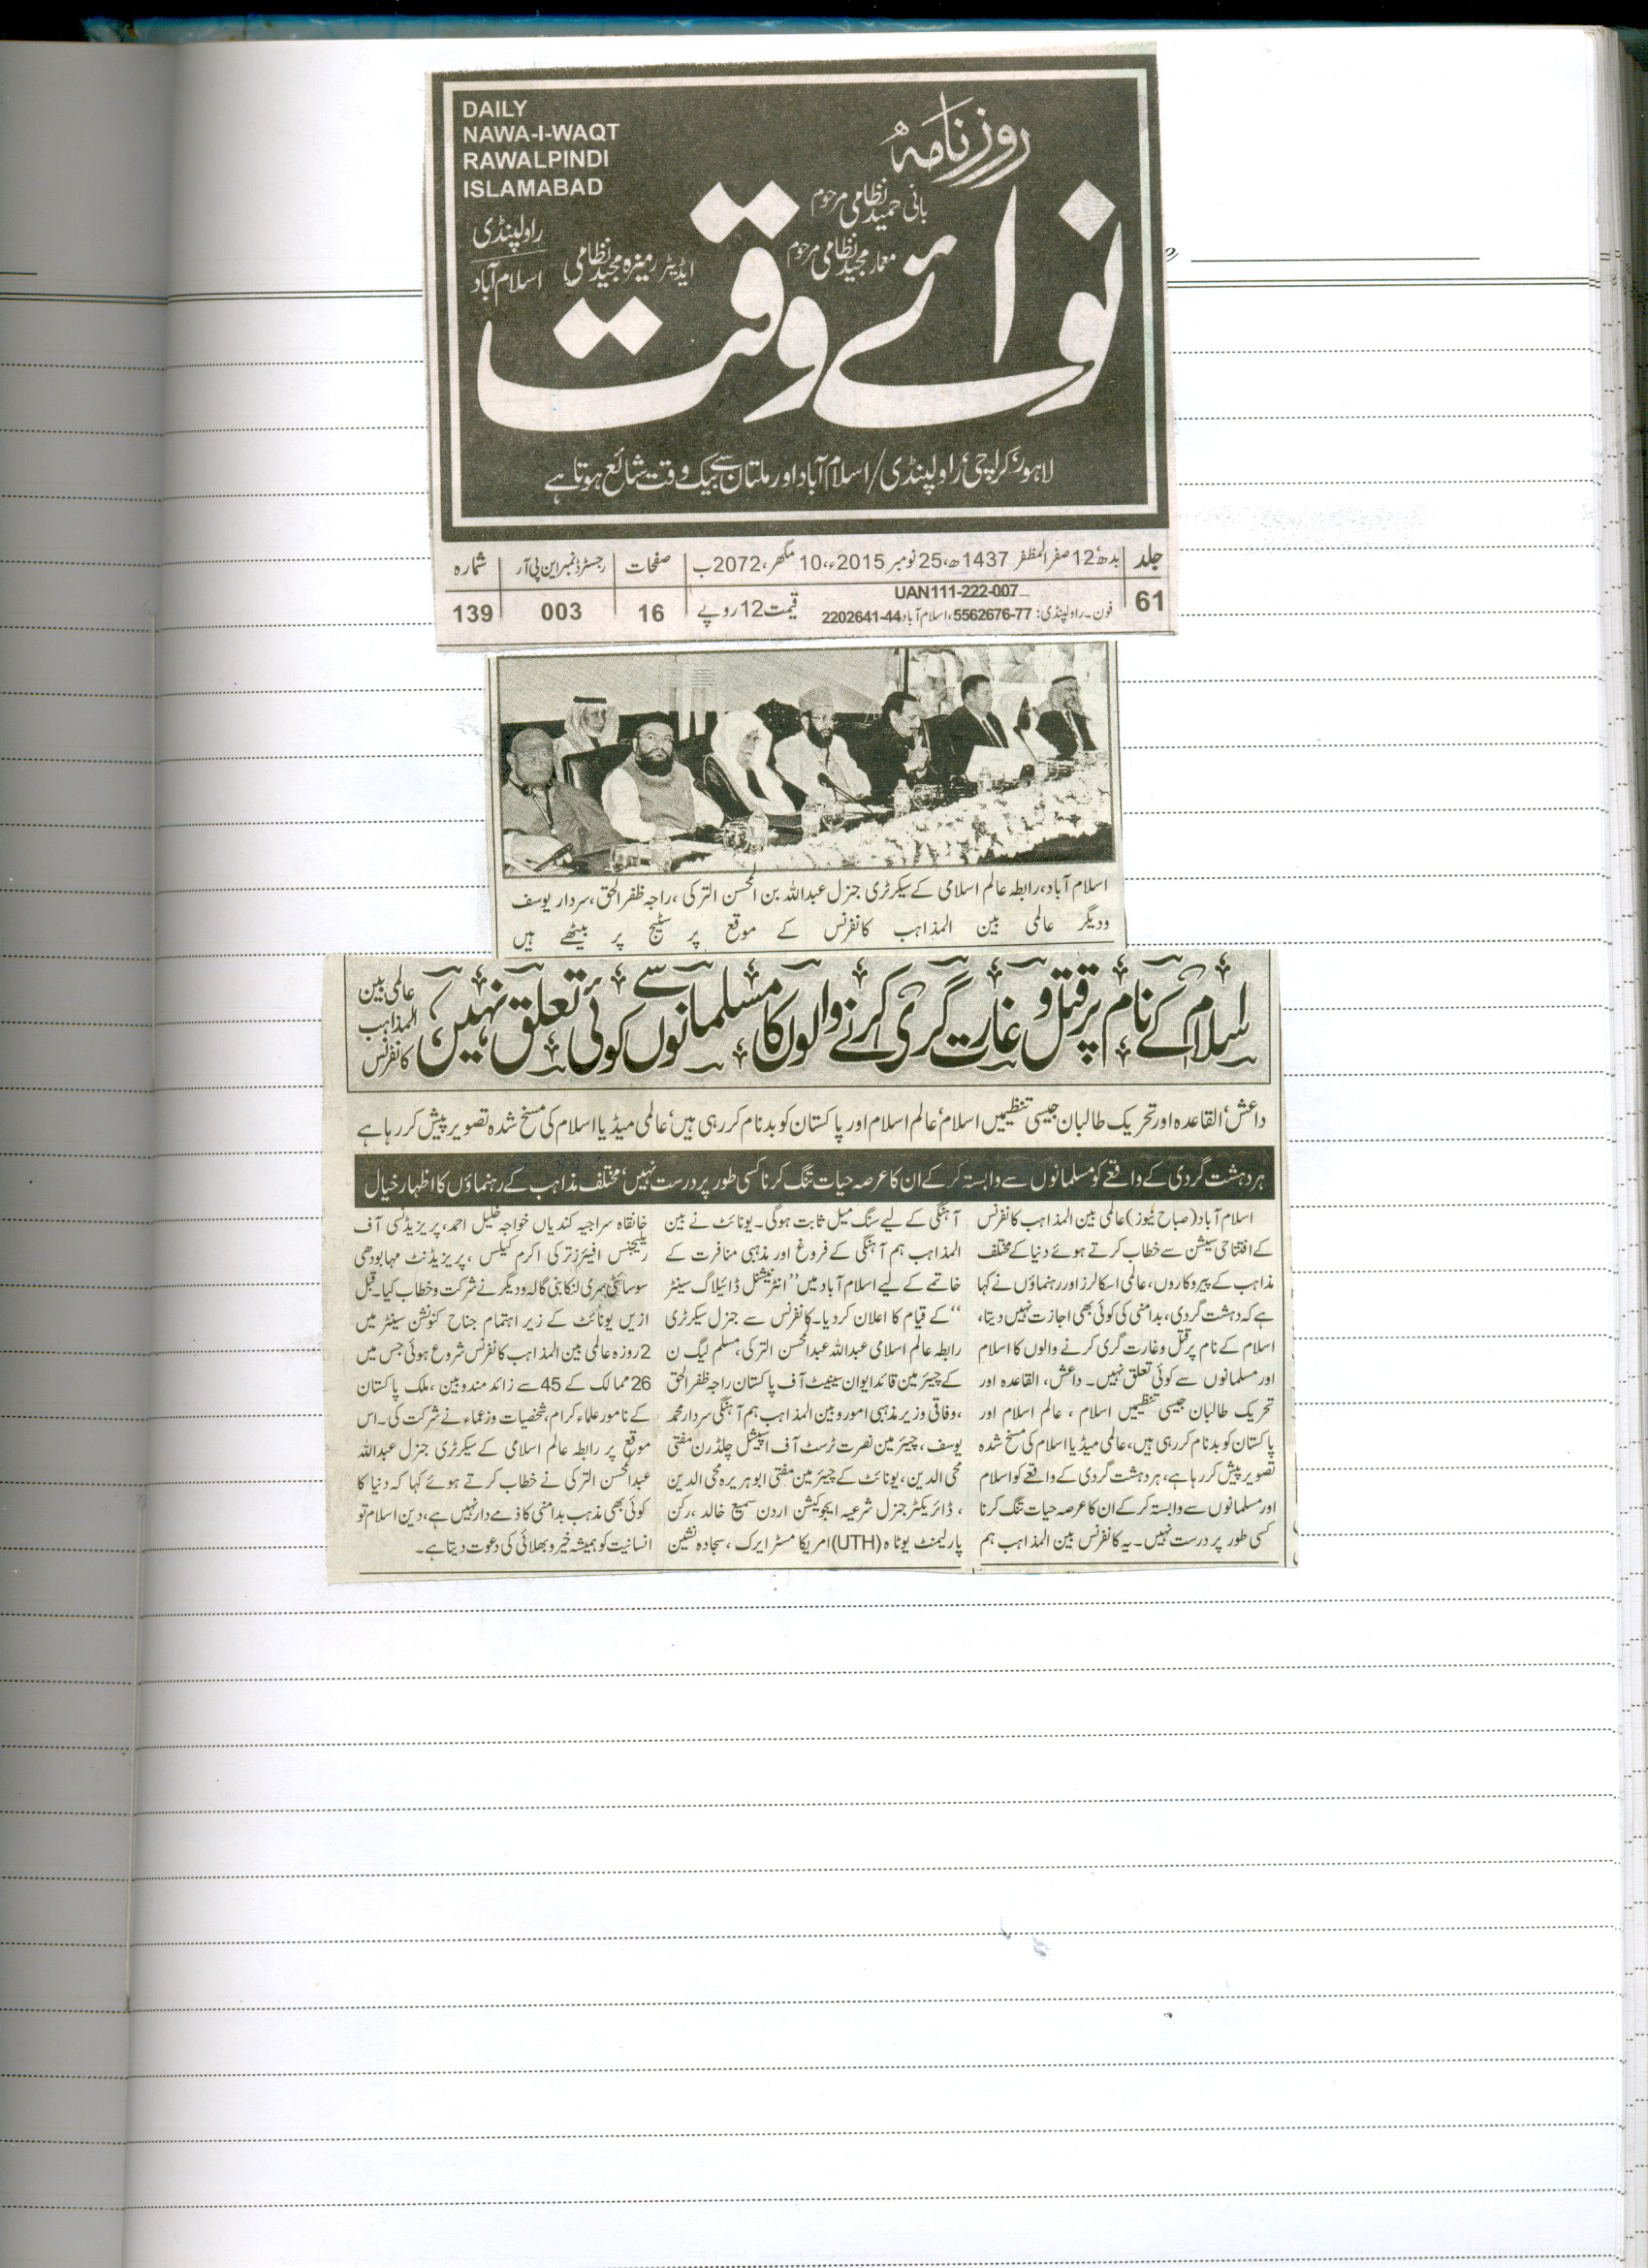 DAILY
NAWA-I-WAQT
RAWALPINDI
ISLAMABAD
روزنامہ
نوائے وقت
بانی حمید نظامی مرحوم
معمار مجید نظامی مرحوم
ایڈیٹر رمیزہ مجید نظامی
راولپنڈی
اسلام آباد
لاہور، کراچی، راولپنڈی/اسلام آباد اور ملتان سے بیک وقت شائع ہوتا ہے
جلد
61
بدھ، 12 صفر المظفر 1437ھ، 25 نومبر 2015ء، 10 مگھر، 2072ب
UAN111-222-007
فون۔ راولپنڈی: 77-5562676، اسلام آباد 44-2202641
قیمت 12 روپے
صفحات
16
رجسٹرڈ نمبر این پی آر
003
شمارہ
139
اسلام آباد، رابطہ عالم اسلامی کے سیکرٹری جنرل عبداللہ بن الحسن الترکی، راجہ ظفر الحق، سردار یوسف
ودیگر عالمی بین المذاہب کانفرنس کے موقع پر سٹیج پر بیٹھے ہیں
اسلام کے نام پر قتل و غارت گری کرنے والوں کا مسلمانوں سے کوئی تعلق نہیں،
عالمی بین
المذاہب
کانفرنس
داعش، القاعدہ اور تحریک طالبان جیسی تنظیمیں اسلام، عالم اسلام اور پاکستان کو بدنام کر رہی ہیں، عالمی میڈیا اسلام کی مسخ شدہ تصویر پیش کر رہا ہے
ہر دہشت گردی کے واقعے کو مسلمانوں سے وابستہ کر کے ان کا عرصہ حیات تنگ کرنا کسی طور پر درست نہیں، مختلف مذاہب کے رہنماؤں کا اظہار خیال
اسلام آباد (صباح نیوز) عالمی بین المذاہب کانفرنس
کے افتتاحی سیشن سے خطاب کرتے ہوئے دنیا کے مختلف
مذاہب کے پیروکاروں، عالمی اسکالرز اور رہنماؤں نے کہا
ہے کہ دہشت گردی، بدامنی کی کوئی بھی اجازت نہیں دیتا،
اسلام کے نام پر قتل و غارت گری کرنے والوں کا اسلام
اور مسلمانوں سے کوئی تعلق نہیں۔ داعش، القاعدہ اور
تحریک طالبان جیسی تنظیمیں اسلام، عالم اسلام اور
پاکستان کو بدنام کر رہی ہیں، عالمی میڈیا اسلام کی مسخ شدہ
تصویر پیش کر رہا ہے، ہر دہشت گردی کے واقعے کو اسلام
اور مسلمانوں سے وابستہ کر کے ان کا عرصہ حیات تنگ کرنا
کسی طور پر درست نہیں۔ یہ کانفرنس بین المذاہب ہم
آہنگی کے لیے سنگ میل ثابت ہوگی۔ یونائٹ نے بین
المذاہب ہم آہنگی کے فروغ اور مذہبی منافرت کے
خاتمے کے لیے اسلام آباد میں ’’انٹرنیشنل ڈائیلاگ سینٹر
‘‘ کے قیام کا اعلان کر دیا۔ کانفرنس سے جنرل سیکرٹری
رابطہ عالم اسلامی عبداللہ عبدالحسن الترکی، مسلم لیگ ن
کے چیئرمین قائد ایوان سینیٹ آف پاکستان راجہ ظفر الحق
، وفاقی وزیر مذہبی امور و بین المذاہب ہم آہنگی سردار محمد
یوسف، چیئرمین نصرت ٹرسٹ آف اسپیشل چلڈرن مفتی
محی الدین، یونائٹ کے چیئرمین مفتی ابو ہریرہ محی الدین
، ڈائریکٹر جنرل شرعیہ ایجوکیشن اردن سمیع خالد، رکن
پارلیمنٹ یوٹاہ (UTH) امریکا مسٹر ایرک، سجادہ نشین
خانقاہ سراجیہ کندیاں خواجہ خلیل احمد، پریزیڈنسی آف
ریلیجنس افیئرز ترکی اکرم کیلکس، پریزیڈنٹ مہابودھی
سوسائٹی سری لنکا بنی گالہ ودیگر نے شرکت و خطاب کیا۔ قبل
ازیں یونائٹ کے زیر اہتمام جناح کنونشن سینٹر میں
2 روزہ عالمی بین المذاہب کانفرنس شروع ہوئی جس میں
26 ممالک کے 45 سے زائد مندوبین، ملک پاکستان
کے نامور علماء کرام، شخصیات و زعماء نے شرکت کی۔ اس
موقع پر رابطہ عالم اسلامی کے سیکرٹری جنرل عبداللہ
عبدالحسن الترکی نے خطاب کرتے ہوئے کہا کہ دنیا کا
کوئی بھی مذہب بدامنی کا ذمے دار نہیں ہے، دین اسلام تو
انسانیت کو ہمیشہ خیر و بھلائی کی دعوت دیتا ہے۔